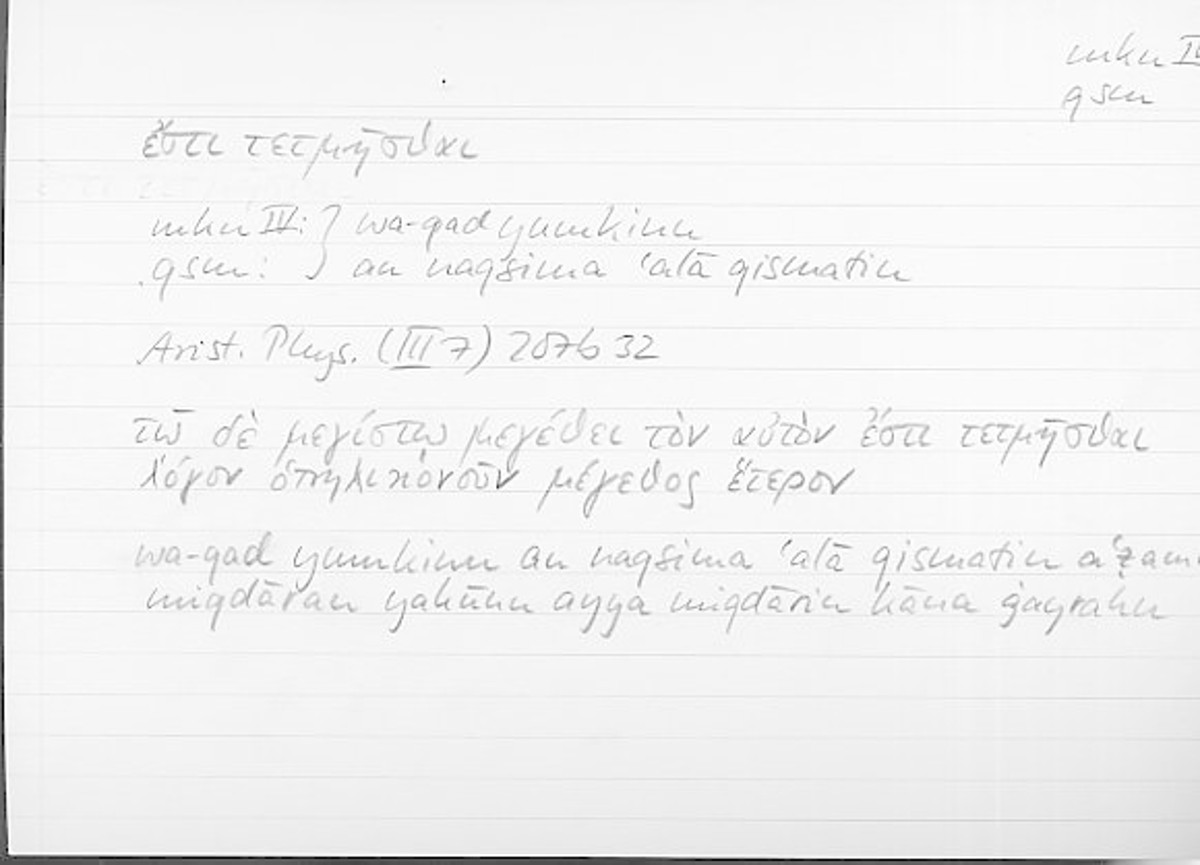 mkn IV
qsm
ἔστι τετμῆσθαι
mkn IV: } wa-qad yumkinu
qsm: } an naqsima ʿalā qismatin
Arist. Phys. (III 7) 207b 32
τῷ δὲ μεγίστῳ μεγέθει τὸν αὐτὸν ἔστι τετμῆσθαι
λόγον ὁπηλικονοῦν μέγεθος ἕτερον
wa-qad yumkinu an naqsima ʿalā qismatin aʿẓam
miqdāran yakūnu ayya miqdārin kāna ġayrahu